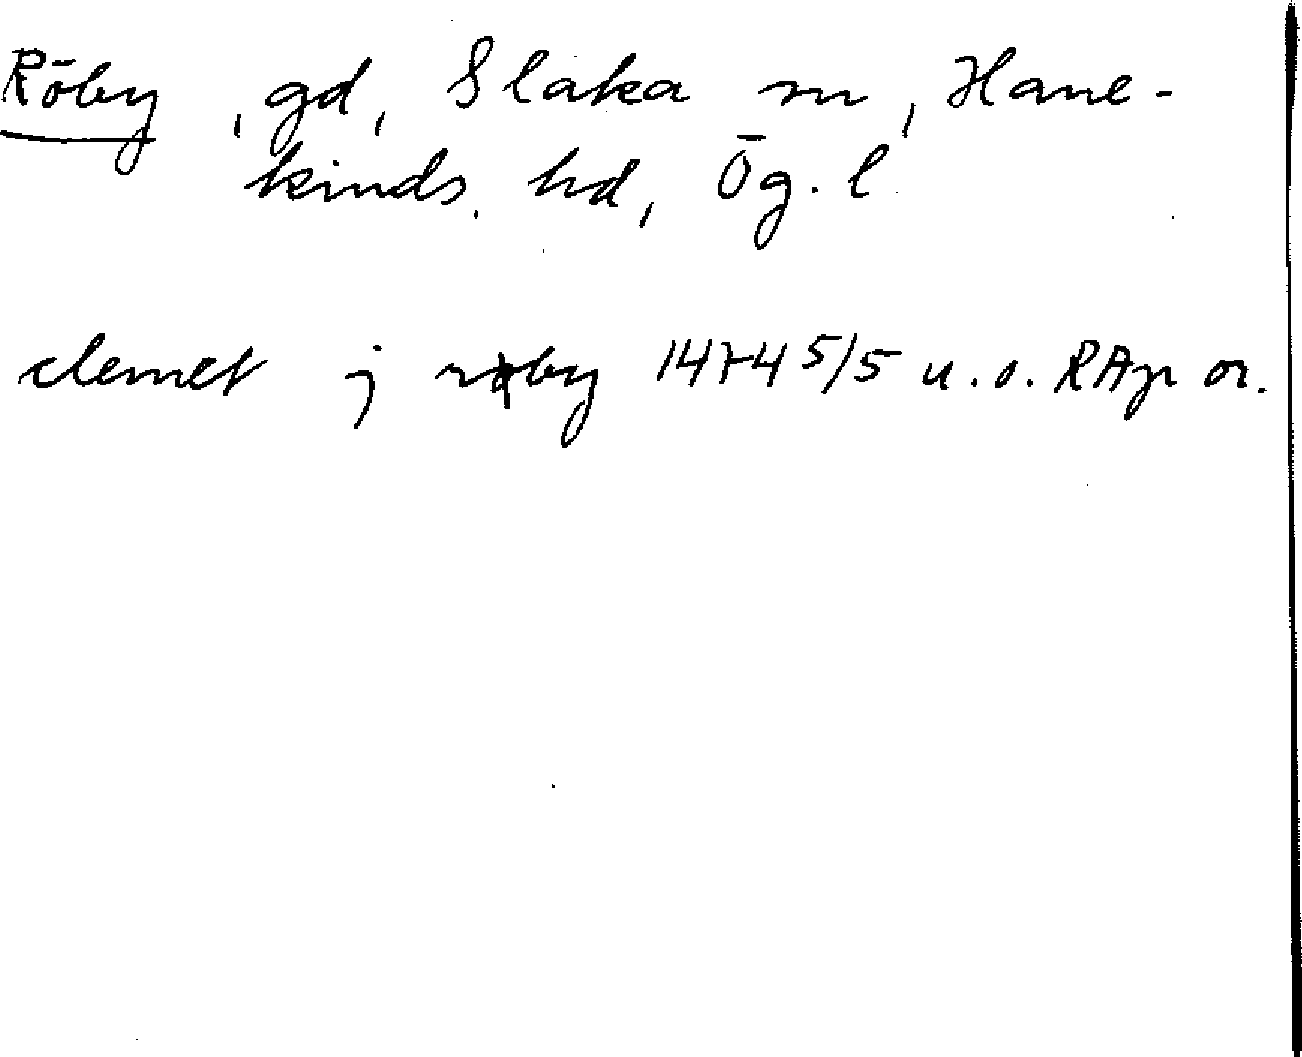 Röby, gd, Slaka sn, Hane-
kinds hd, Ög. l
clemet j røby 1474 5/5 u.o. RAp or.